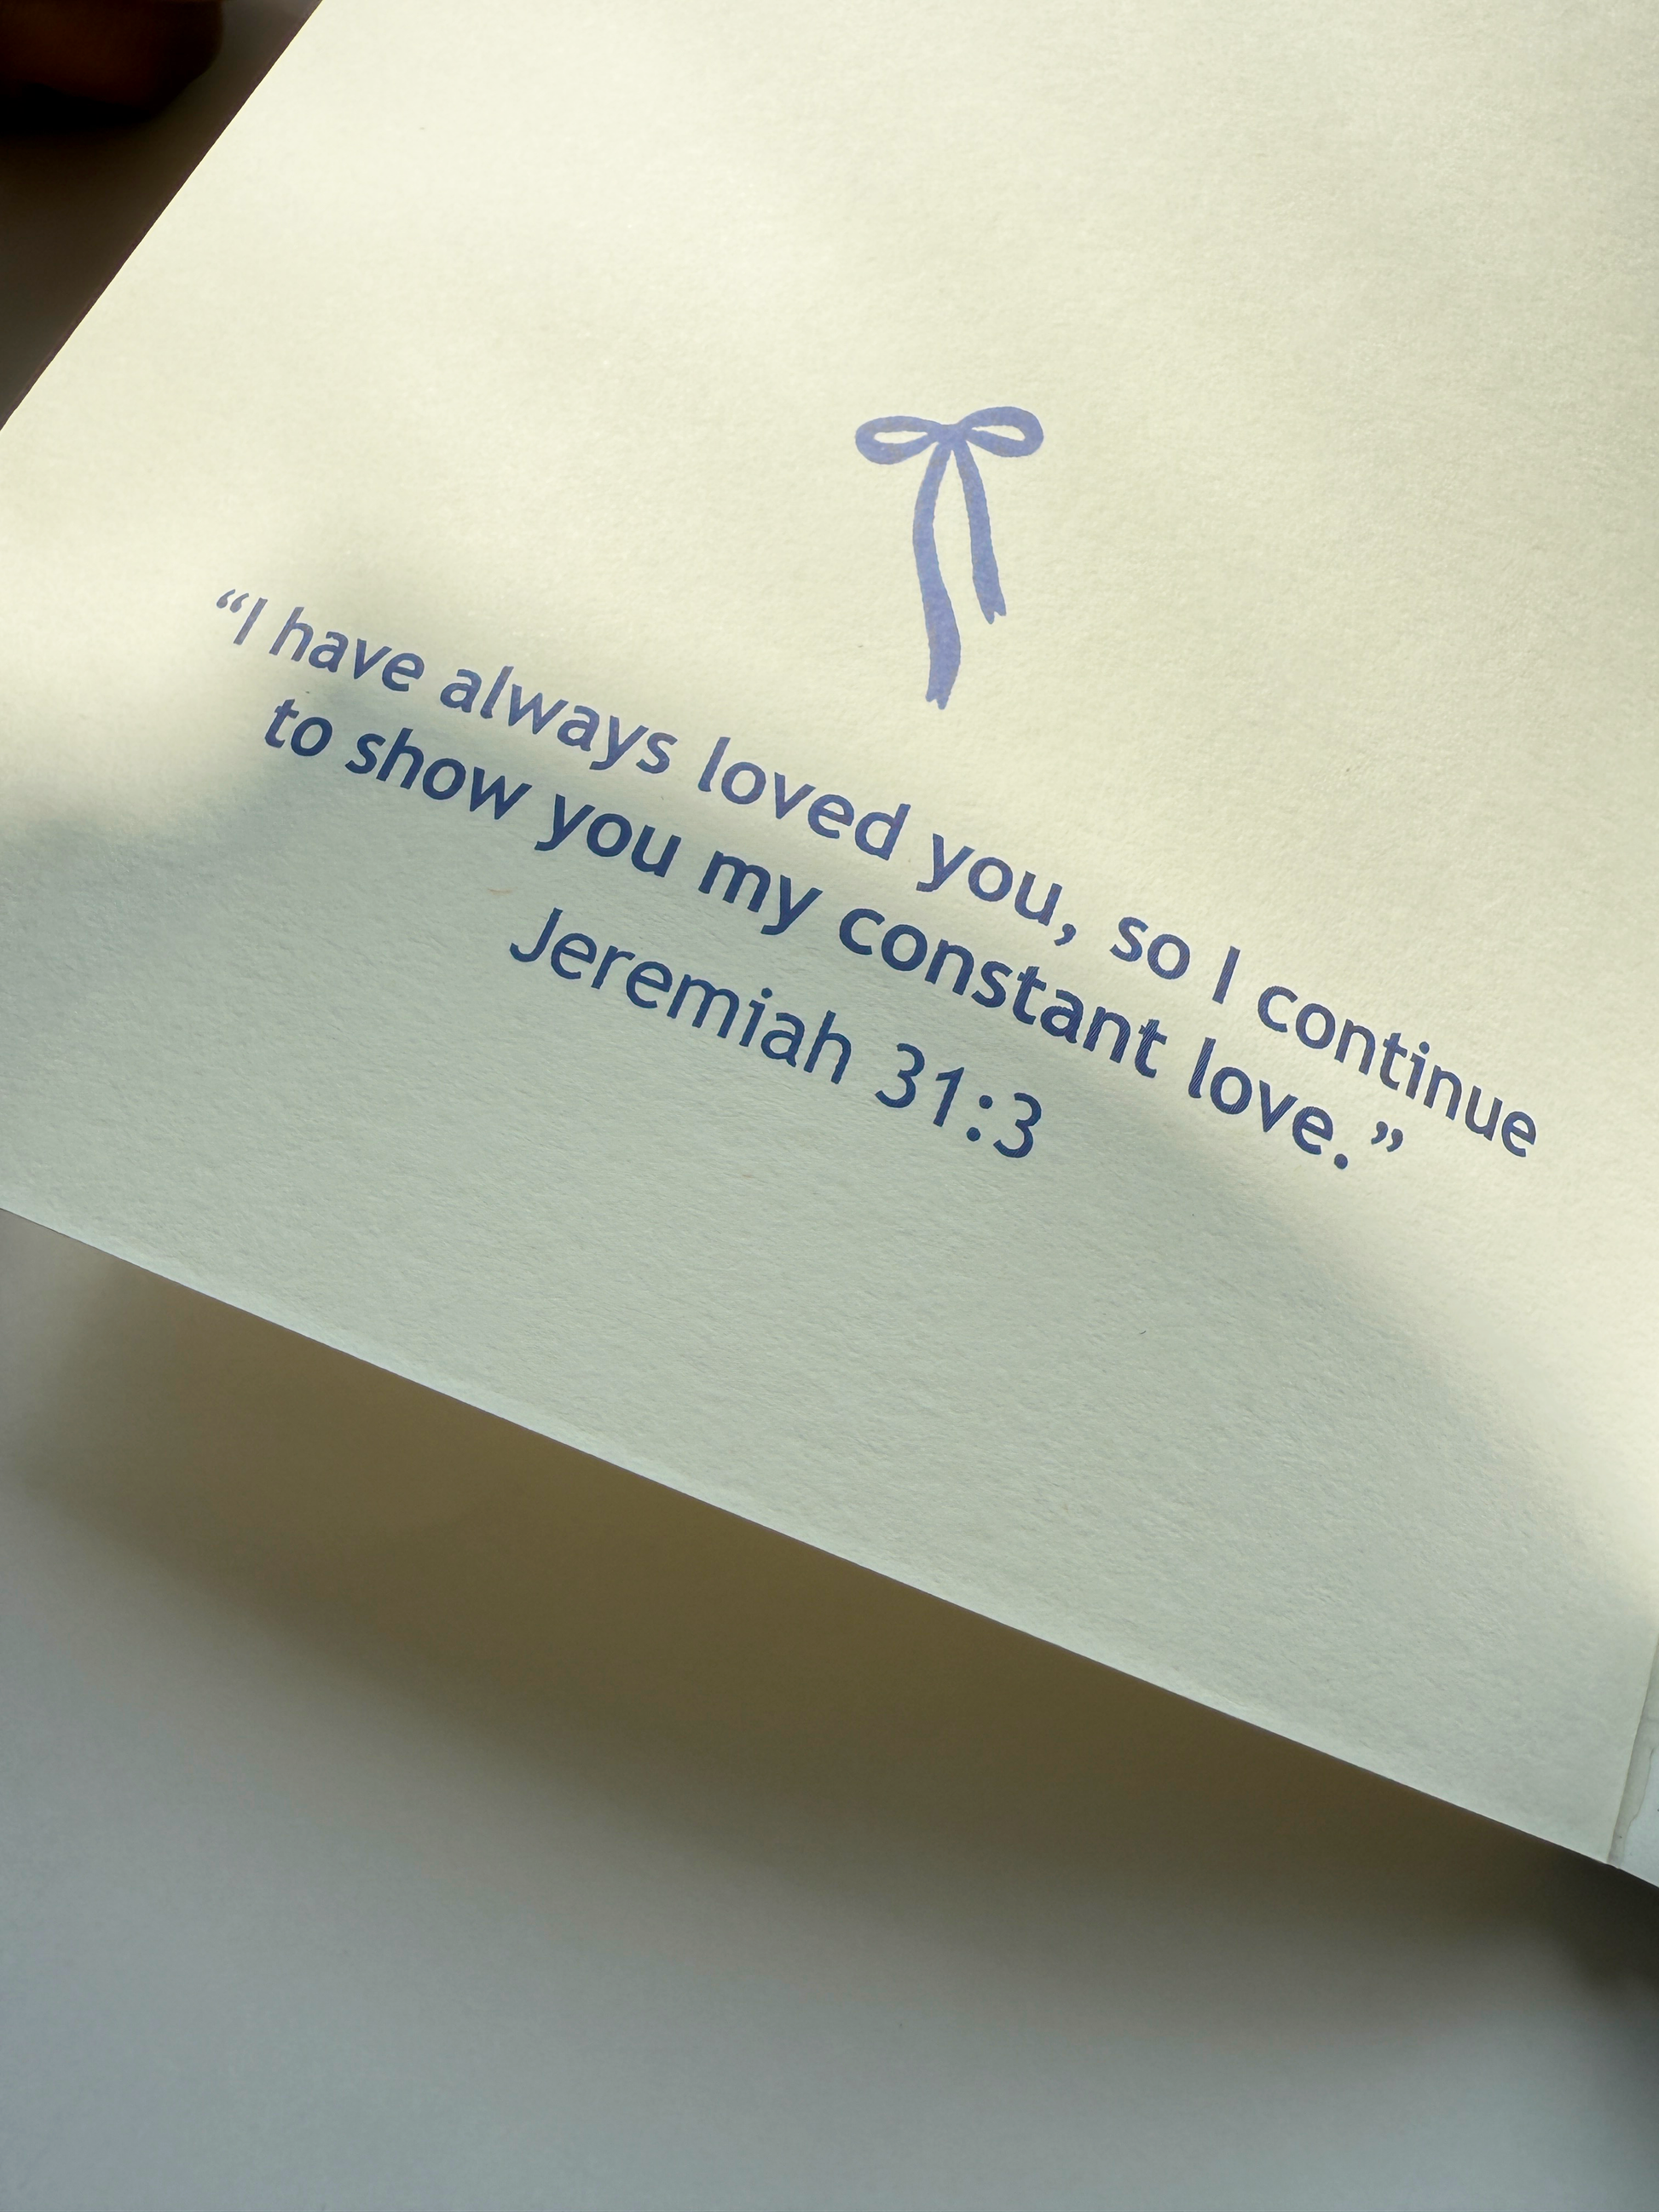 “I have always loved you, so I continue
to show you my constant love.”
Jeremiah 31:3